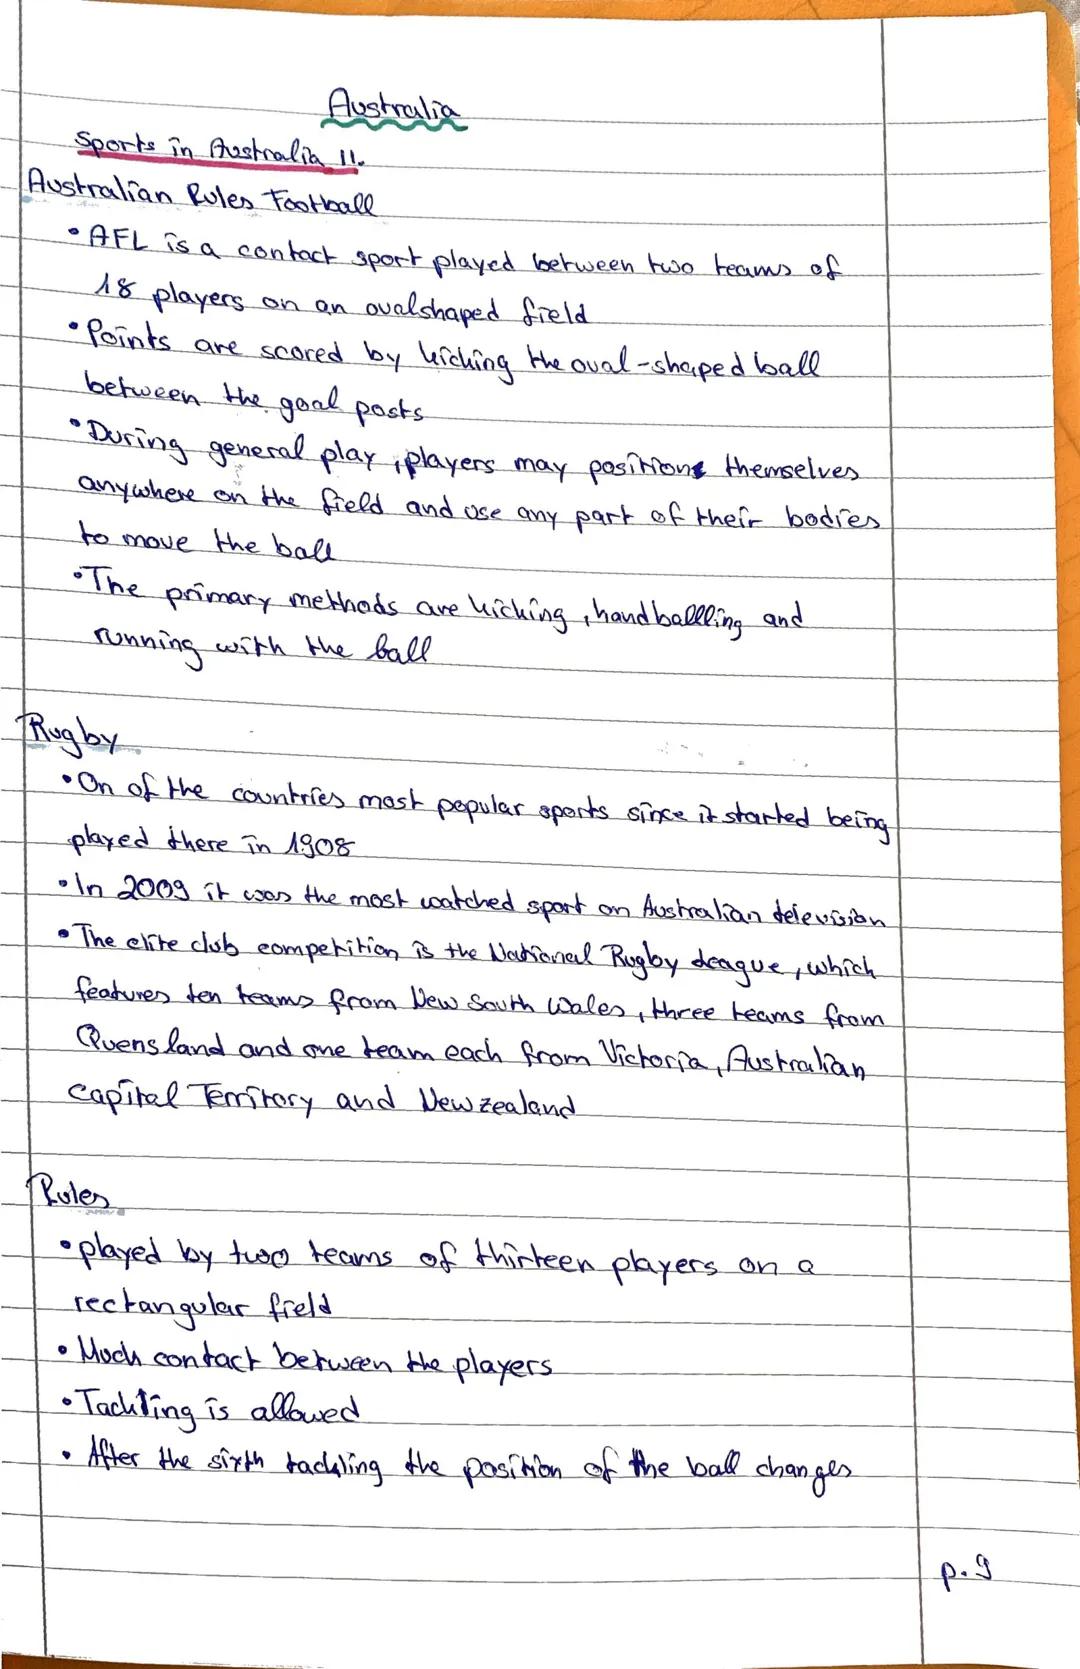 Australia
Sports in Australia II.
Australian Rules Football
• AFL is a contact sport played between two teams of
18 players on an ovalshaped field
• Points are scored by kicking the oval-shaped ball
between the goal posts
• During general play, players may positions themselves
anywhere on the field and use any part of their bodies
to move the ball
• The primary methods are kicking, handballling and
running with the ball
Rugby
• On of the countries most popular sports since it started being
played there in 1908
• In 2009 it was the most watched sport on Australian television
• The elite club competition is the National Rugby league, which
features ten teams from New South Wales, three teams from
Quensland and one team each from Victoria, Australian
Capital Territory and New zealand
Rules
• played by two teams of thirteen players on a
rectangular field
• Much contact between the players
• Tackling is allowed
• After the sixth tackling the position of the ball changes
p. 9